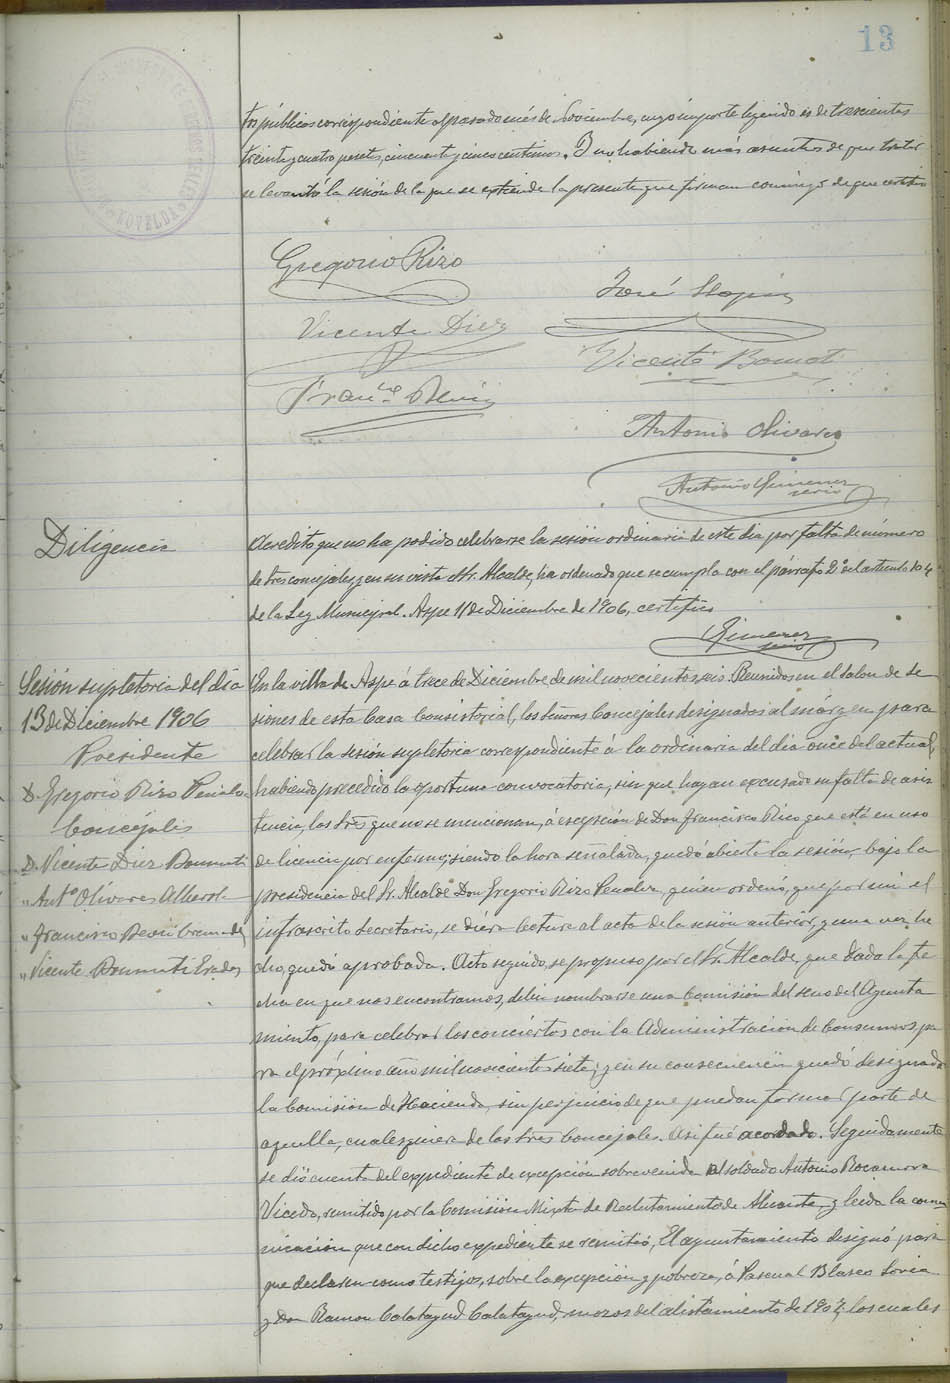 13
tos públicos correspondiente al pasado més de Noviembre, cuyo importe liquido es de trescientas
treinta y cuatro pesetas, cincuenta y cinco centimos. Y no habiendo más asuntos de que tratar
se levantó la sesión de la que se extiende la presente que firman conmigo de que certifico
Gregorio Rizo
José
Vicente Diez
Vicente
Franco
Antonio Olivares
Antonio Gimenez
Diligencia
Acredito que no ha podido celebrarse la sesión ordinaria de este dia por falta de número
de Sres concejales, y en su vista el Sr. Alcalde, ha ordenado que se cumpla con el párrafo 2º del articulo 104
de la Ley Municipal. Aspe 11 de Diciembre de 1906, certifico
Gimenez
Sesión supletoria del dia
13 de Diciembre 1906
Presidente
D. Gregorio Rizo Penalva
Concejales
D. Vicente Diez
" Antº Olivares Alberola
" Francisco Cremades
" Vicente
En la villa de Aspe á trece de Diciembre de mil novecientos seis. Reunidos en el salon de se
siones de esta Casa Consistorial, los Señores Concejales designados al márgen para
celebrar la sesión supletoria correspondiente á la ordinaria del dia once del actual,
habiendo precedido la oportuna convocatoria, sin que hayan excusado su falta de asis
tencia, los Sres que no se mencionan, á escepción de Don Francisco Rico que está en uso
de licencia por enfermo; siendo la hora señalada, quedó abierta la sesión, bajo la
presidencia del Sr. Alcalde Don Gregorio Rizo Penalva, quien ordenó, que por mi el
infrascrito Secretario, se diera lectura al acta de la sesión anterior, y una vez he
cho, quedó aprobada. Acto seguido, se propuso por el Sr. Alcalde, que dada la fe
cha en que nos encontramos, debia nombrarse una Comisión del seno del Ayunta
miento, para celebrar los conciertos con la Administración de Consumos, pa
ra el próximo año mil novecientos siete; y en su consecuencia quedó designada
la Comisión de Hacienda, sin perjuicio de que puedan formar parte de
aquella, cualesquiera de los Sres Concejales. Asi fué acordado. Seguidamente
se dió cuenta del expediente de excepción sobrevenida al soldado Antonio Rocamora
Vicedo, remitido por la Comisión Mixta de Reclutamiento de Alicante, y leida la comu
nicación que con dicho expediente se remitió, El ayuntamiento designó para
que declaren como testigos, sobre la excepción y pobreza, á Pascual Blasco Soria
y Don Ramon Calatayud Calatayud, mozos del alistamiento de 1902, los cuales